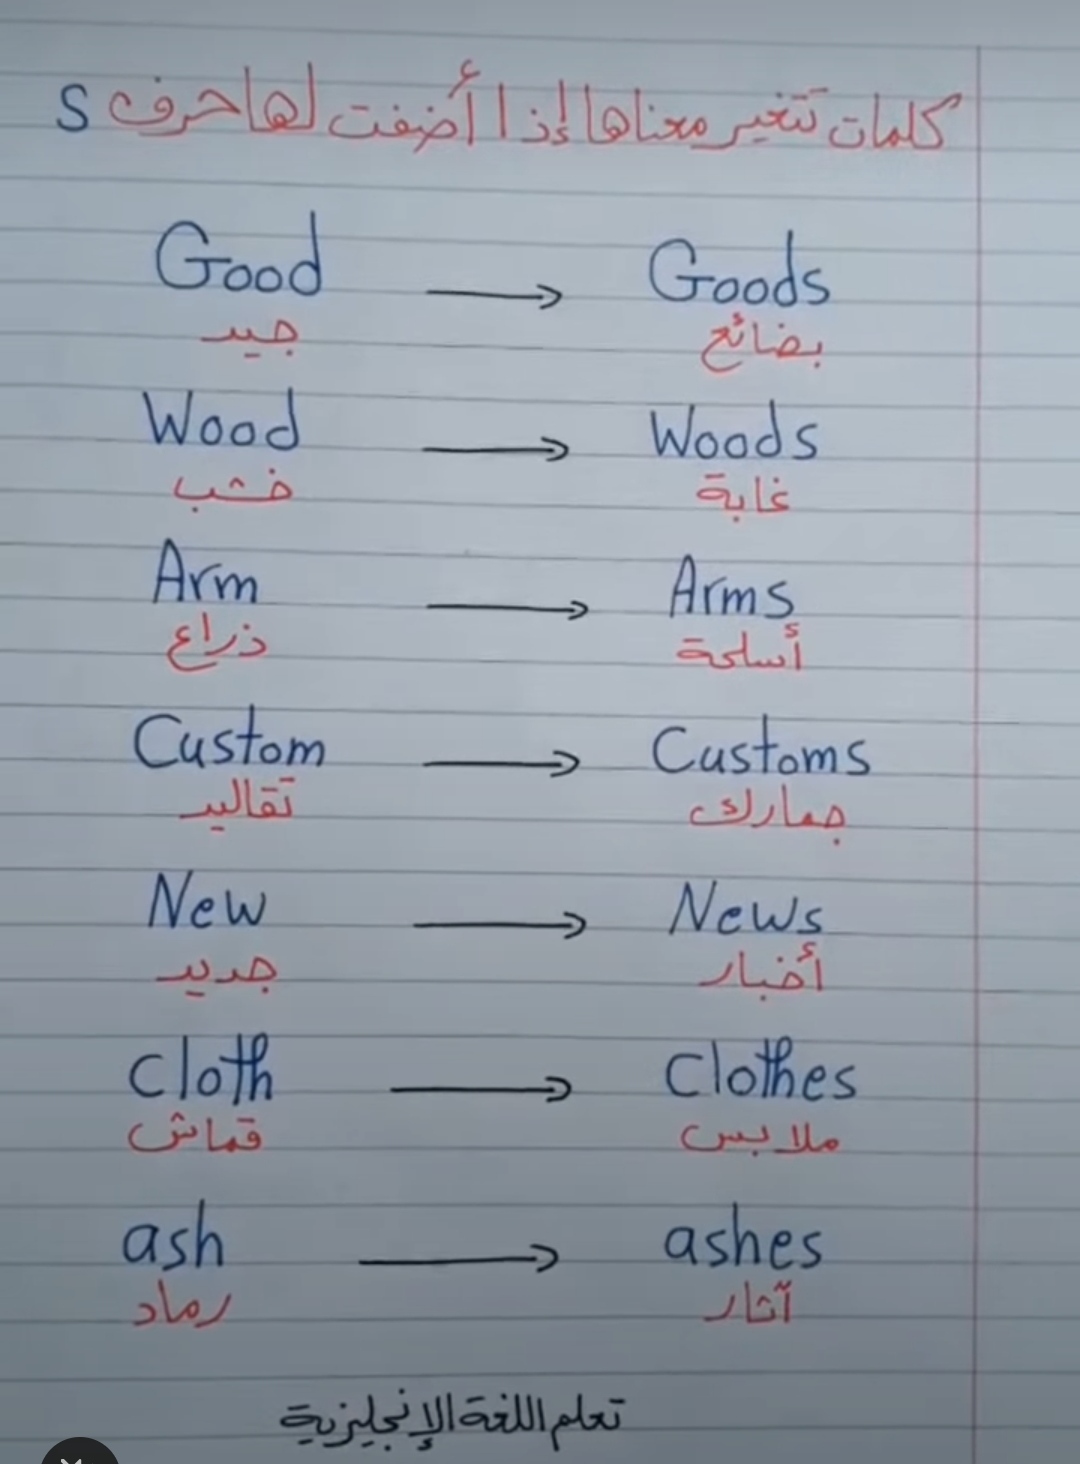 كلمات تتغير معناها إذا أضفت لها حرف S
Good → Goods
جيد بضائع
Wood → Woods
خشب غابة
Arm → Arms
ذراع أسلحة
Custom → Customs
تقاليد جمارك
New → News
جديد أخبار
cloth → clothes
قماش ملابس
ash → ashes
رماد آثار
تعلم اللغة الإنجليزية